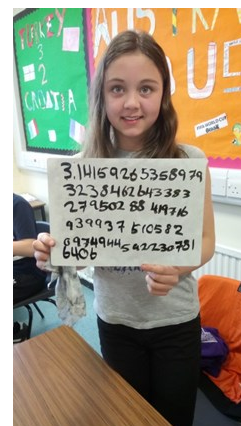 TURKEY
3
2
CROATIA
3.14159265358979
323846264 3383
279502 88 419716
939937 510582
0974944592230781
6406